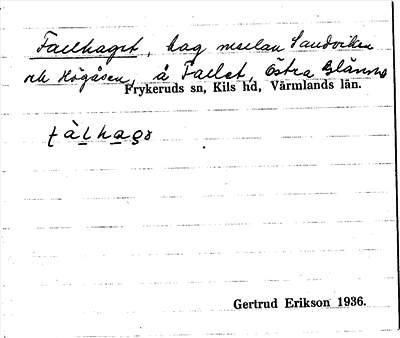 Faelhaget, hag mellan Sandviken
och Högåsen, å Faelet, Östra Glänne
Frykeruds sn, Kils hd, Värmlands län.
Gertrud Erikson 1936.